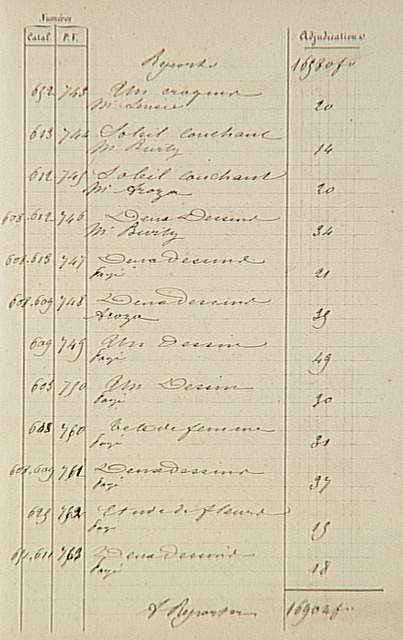 Numéros
Catal. P.V. Adjudications
Reports 16580 fr
652 743 Un croquis
Mr 20
613 744 Soleil couchant
Mr Burty 14
612 745 Soleil couchant
Mr Aroza 20
608.612 746 Deux Dessins
Mr Burty 34
608.613 747 Deux dessins
Payé 21
608.609 748 2 Deux dessins
Aroza
609 749 Un Dessin
Payé 49
603 750 Un Dessin
Payé 30
608 760 Tete de femme
Payé 31
608.609 761 2 Deux dessins
Payé 37
762 Etude de fleurs
Payé 15
763 2 Deux dessins
Payé 18
A Reporter 16904 fr